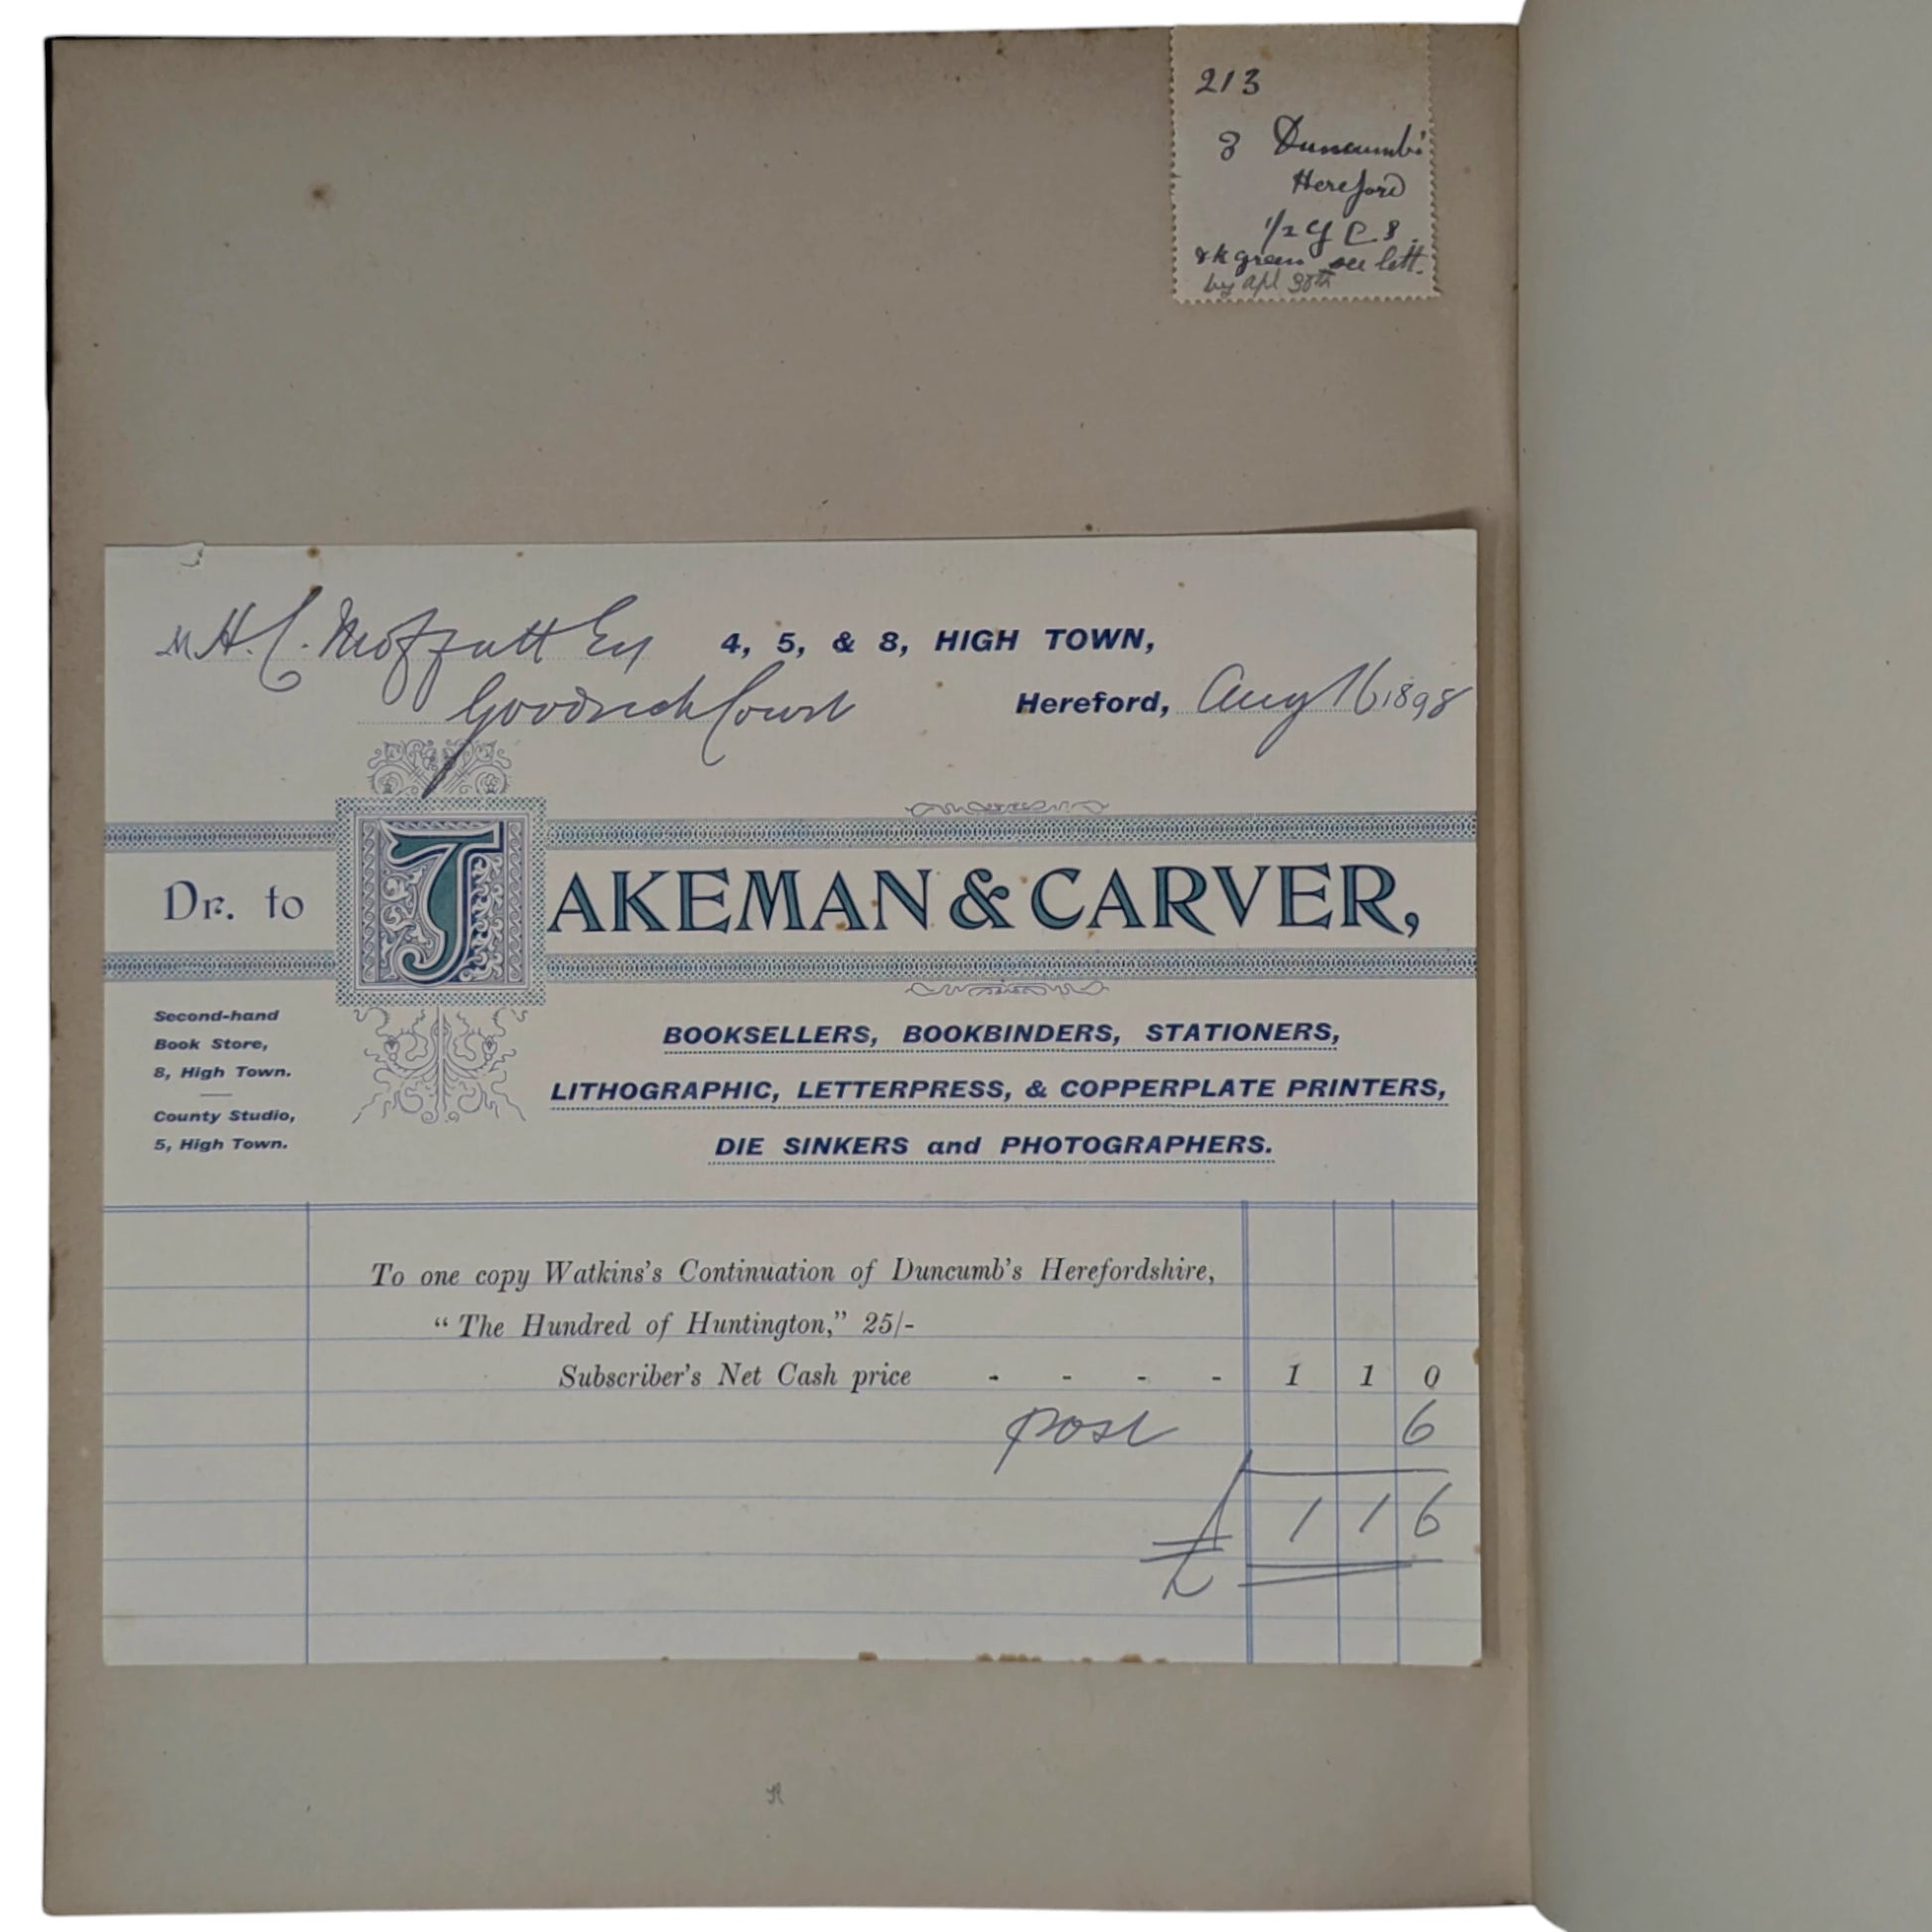 213
3 Duncumb's
Hereford
1/2
green see lett.
by apl 30th
M H. C. Moffatt Esq
4, 5, & 8, HIGH TOWN,
Goodrich Court
Hereford, Aug 16 1898
Dr. to JAKEMAN & CARVER,
Second-hand
Book Store,
8, High Town.
County Studio,
5, High Town.
BOOKSELLERS, BOOKBINDERS, STATIONERS,
LITHOGRAPHIC, LETTERPRESS, & COPPERPLATE PRINTERS,
DIE SINKERS and PHOTOGRAPHERS.
To one copy Watkins's Continuation of Duncumb's Herefordshire,
"The Hundred of Huntington," 25/-
Subscriber's Net Cash price - - - - 1 1 0
post 6
£ 1 1 6